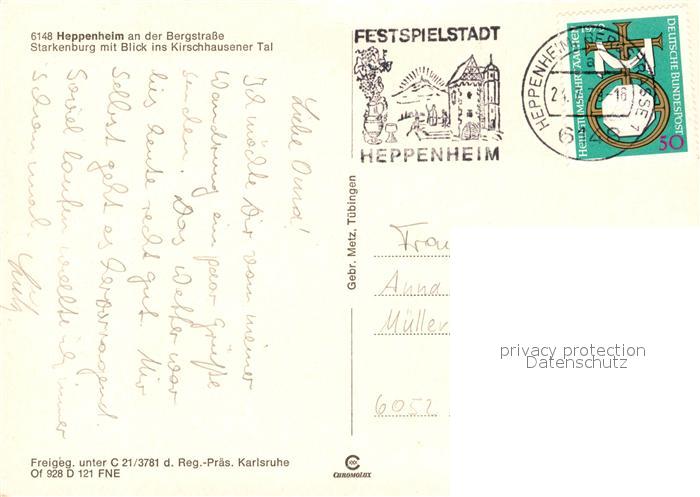 6148 Heppenheim an der Bergstraße
Starkenburg mit Blick ins Kirschhausener Tal
Liebe Oma!
Ich möchte Dir von meiner
Wandrung ein paar Grüße
senden. Das Wetter war
bis heute recht gut. Mir
selbst geht es hervorragend.
Soviel laufen wollte ich immer
schon mal.
Freigeg. unter C 21/3781 d. Reg.-Präs. Karlsruhe
Of 928 D 121 FNE
Gebr. Metz, Tübingen
CHROMOLUX
FESTSPIELSTADT
HEPPENHEIM
HEPPENHEIM
24.
6148
HEILIGTUMSFAHRT AACHEN 1979
DEUTSCHE BUNDESPOST
50
Frau
Anna
Müller
6052
privacy protection
Datenschutz